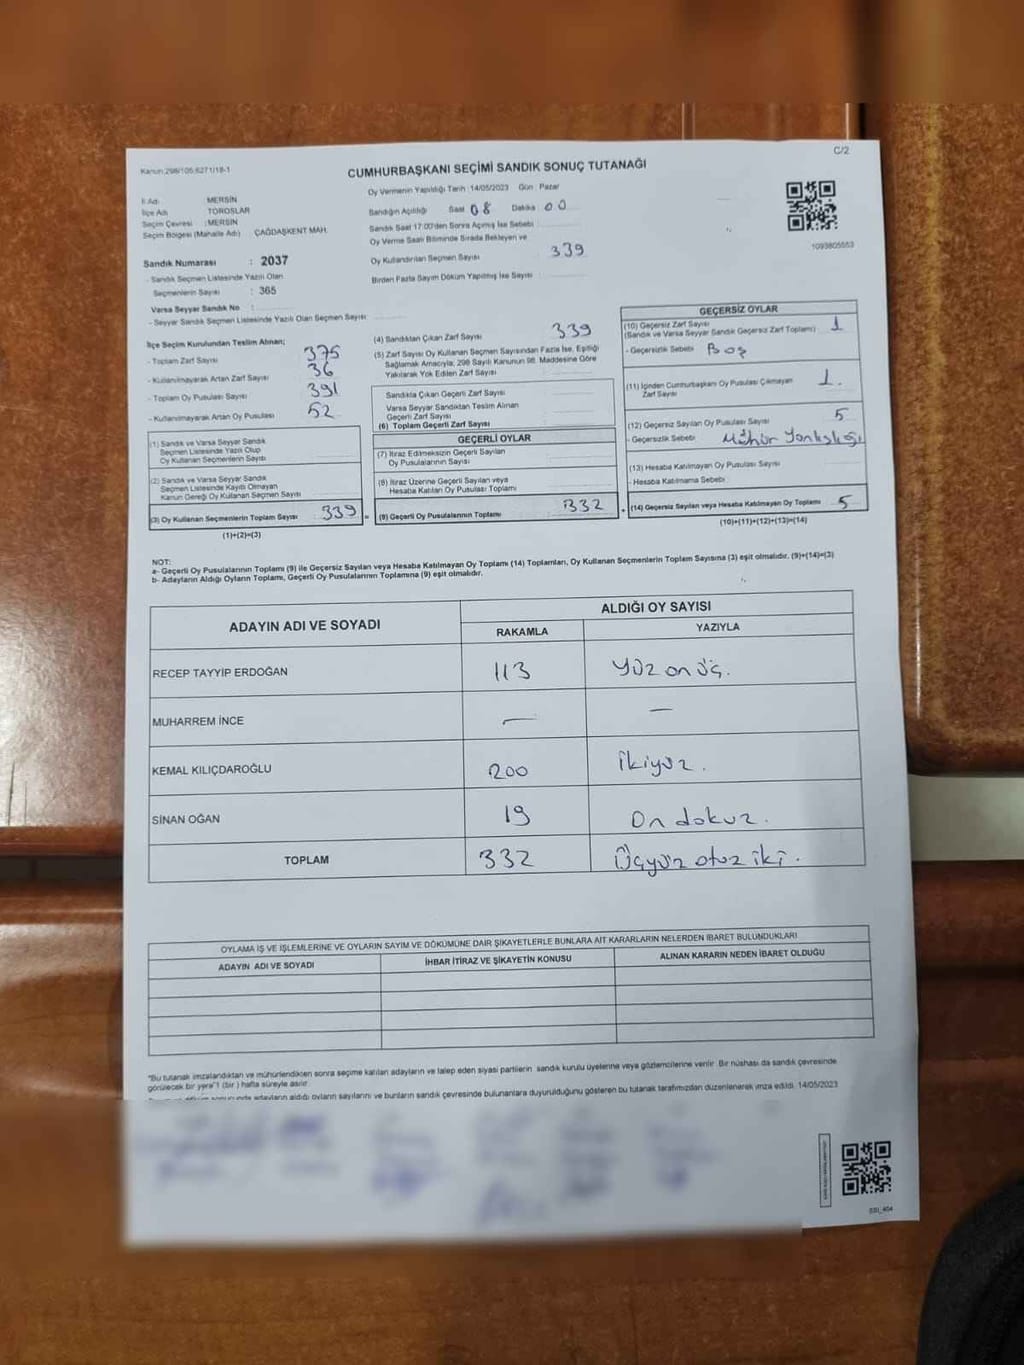 C/2
Kanun:298/105,6271/18-1
CUMHURBAŞKANI SEÇİMİ SANDIK SONUÇ TUTANAĞI
İl Adı : MERSİN
İlçe Adı : TOROSLAR
Seçim Çevresi : MERSİN
Seçim Bölgesi (Mahalle Adı) : ÇAĞDAŞKENT MAH.
Sandık Numarası : 2037
- Sandık Seçmen Listesinde Yazılı Olan
Seçmenlerin Sayısı : 365
Varsa Seyyar Sandık No :
- Seyyar Sandık Seçmen Listesinde Yazılı Olan Seçmen Sayısı
Oy Vermenin Yapıldığı Tarih :14/05/2023 Gün : Pazar
Sandığın Açıldığı Saat 08 Dakika 00
Sandık Saat 17:00'den Sonra Açılmış İse Sebebi :
Oy Verme Saati Bitiminde Sırada Bekleyen ve
Oy Kullandırılan Seçmen Sayısı 339
Birden Fazla Sayım Döküm Yapılmış İse Sayısı :
1093805553
İlçe Seçim Kurulundan Teslim Alınan;
- Toplam Zarf Sayısı 375
- Kullanılmayarak Artan Zarf Sayısı 36
- Toplam Oy Pusulası Sayısı 391
- Kullanılmayarak Artan Oy Pusulası 52
(1) Sandık ve Varsa Seyyar Sandık
Seçmen Listesinde Yazılı Olup
Oy Kullanan Seçmenlerin Sayısı
(2) Sandık ve Varsa Seyyar Sandık
Seçmen Listesinde Kayıtlı Olmayan
Kanun Gereği Oy Kullanan Seçmen Sayısı
(3) Oy Kullanan Seçmenlerin Toplam Sayısı 339 =
(1)+(2)=(3)
(4) Sandıktan Çıkan Zarf Sayısı 339
(5) Zarf Sayısı Oy Kullanan Seçmen Sayısından Fazla İse, Eşitliği
Sağlamak Amacıyla, 298 Sayılı Kanunun 98. Maddesine Göre
Yakılarak Yok Edilen Zarf Sayısı
Sandıkta Çıkan Geçerli Zarf Sayısı
Varsa Seyyar Sandıktan Teslim Alınan
Geçerli Zarf Sayısı
(6) Toplam Geçerli Zarf Sayısı
GEÇERLİ OYLAR
(7) İtiraz Edilmeksizin Geçerli Sayılan
Oy Pusulalarının Sayısı
(8) İtiraz Üzerine Geçerli Sayılan veya
Hesaba Katılan Oy Pusulası Toplamı
(9) Geçerli Oy Pusulalarının Toplamı 332 +
GEÇERSİZ OYLAR
(10) Geçersiz Zarf Sayısı 1
(Sandık ve Varsa Seyyar Sandık Geçersiz Zarf Toplamı)
- Geçersizlik Sebebi Boş
(11) İçinden Cumhurbaşkanı Oy Pusulası Çıkmayan 1.
Zarf Sayısı
(12) Geçersiz Sayılan Oy Pusulası Sayısı 5
- Geçersizlik Sebebi Mühür Yanlışlığı
(13) Hesaba Katılmayan Oy Pusulası Sayısı
- Hesaba Katılmama Sebebi
(14) Geçersiz Sayılan veya Hesaba Katılmayan Oy Toplamı 5
(10)+(11)+(12)+(13)=(14)
NOT:
a- Geçerli Oy Pusulalarının Toplamı (9) ile Geçersiz Sayılan veya Hesaba Katılmayan Oy Toplamı (14) Toplamları, Oy Kullanan Seçmenlerin Toplam Sayısına (3) eşit olmalıdır. (9)+(14)=(3)
b- Adayların Aldığı Oyların Toplamı, Geçerli Oy Pusulalarının Toplamına (9) eşit olmalıdır.
ADAYIN ADI VE SOYADI
ALDIĞI OY SAYISI
RAKAMLA YAZIYLA
RECEP TAYYİP ERDOĞAN 113 Yüz onüç.
MUHARREM İNCE — —
KEMAL KILIÇDAROĞLU 200 İkiyüz.
SİNAN OĞAN 19 On dokuz.
TOPLAM 332 Üçyüz otuz iki.
OYLAMA İŞ VE İŞLEMLERİNE VE OYLARIN SAYIM VE DÖKÜMÜNE DAİR ŞİKAYETLERLE BUNLARA AİT KARARLARIN NELERDEN İBARET BULUNDUKLARI
ADAYIN ADI VE SOYADI İHBAR İTİRAZ VE ŞİKAYETİN KONUSU ALINAN KARARIN NEDEN İBARET OLDUĞU
"Bu tutanak imzalandıktan ve mühürlendikten sonra seçime katılan adayların ve talep eden siyasi partilerin sandık kurulu üyelerine veya gözlemcilerine verilir. Bir nüshası da sandık çevresinde
görülecek bir yere"1 (bir) hafta süreyle asılır.
adayların aldığı oyların sayılarını ve bunların sandık çevresinde bulunanlara duyurulduğunu gösteren bu tutanak tarafımızdan düzenlenerek imza edildi. 14/05/2023